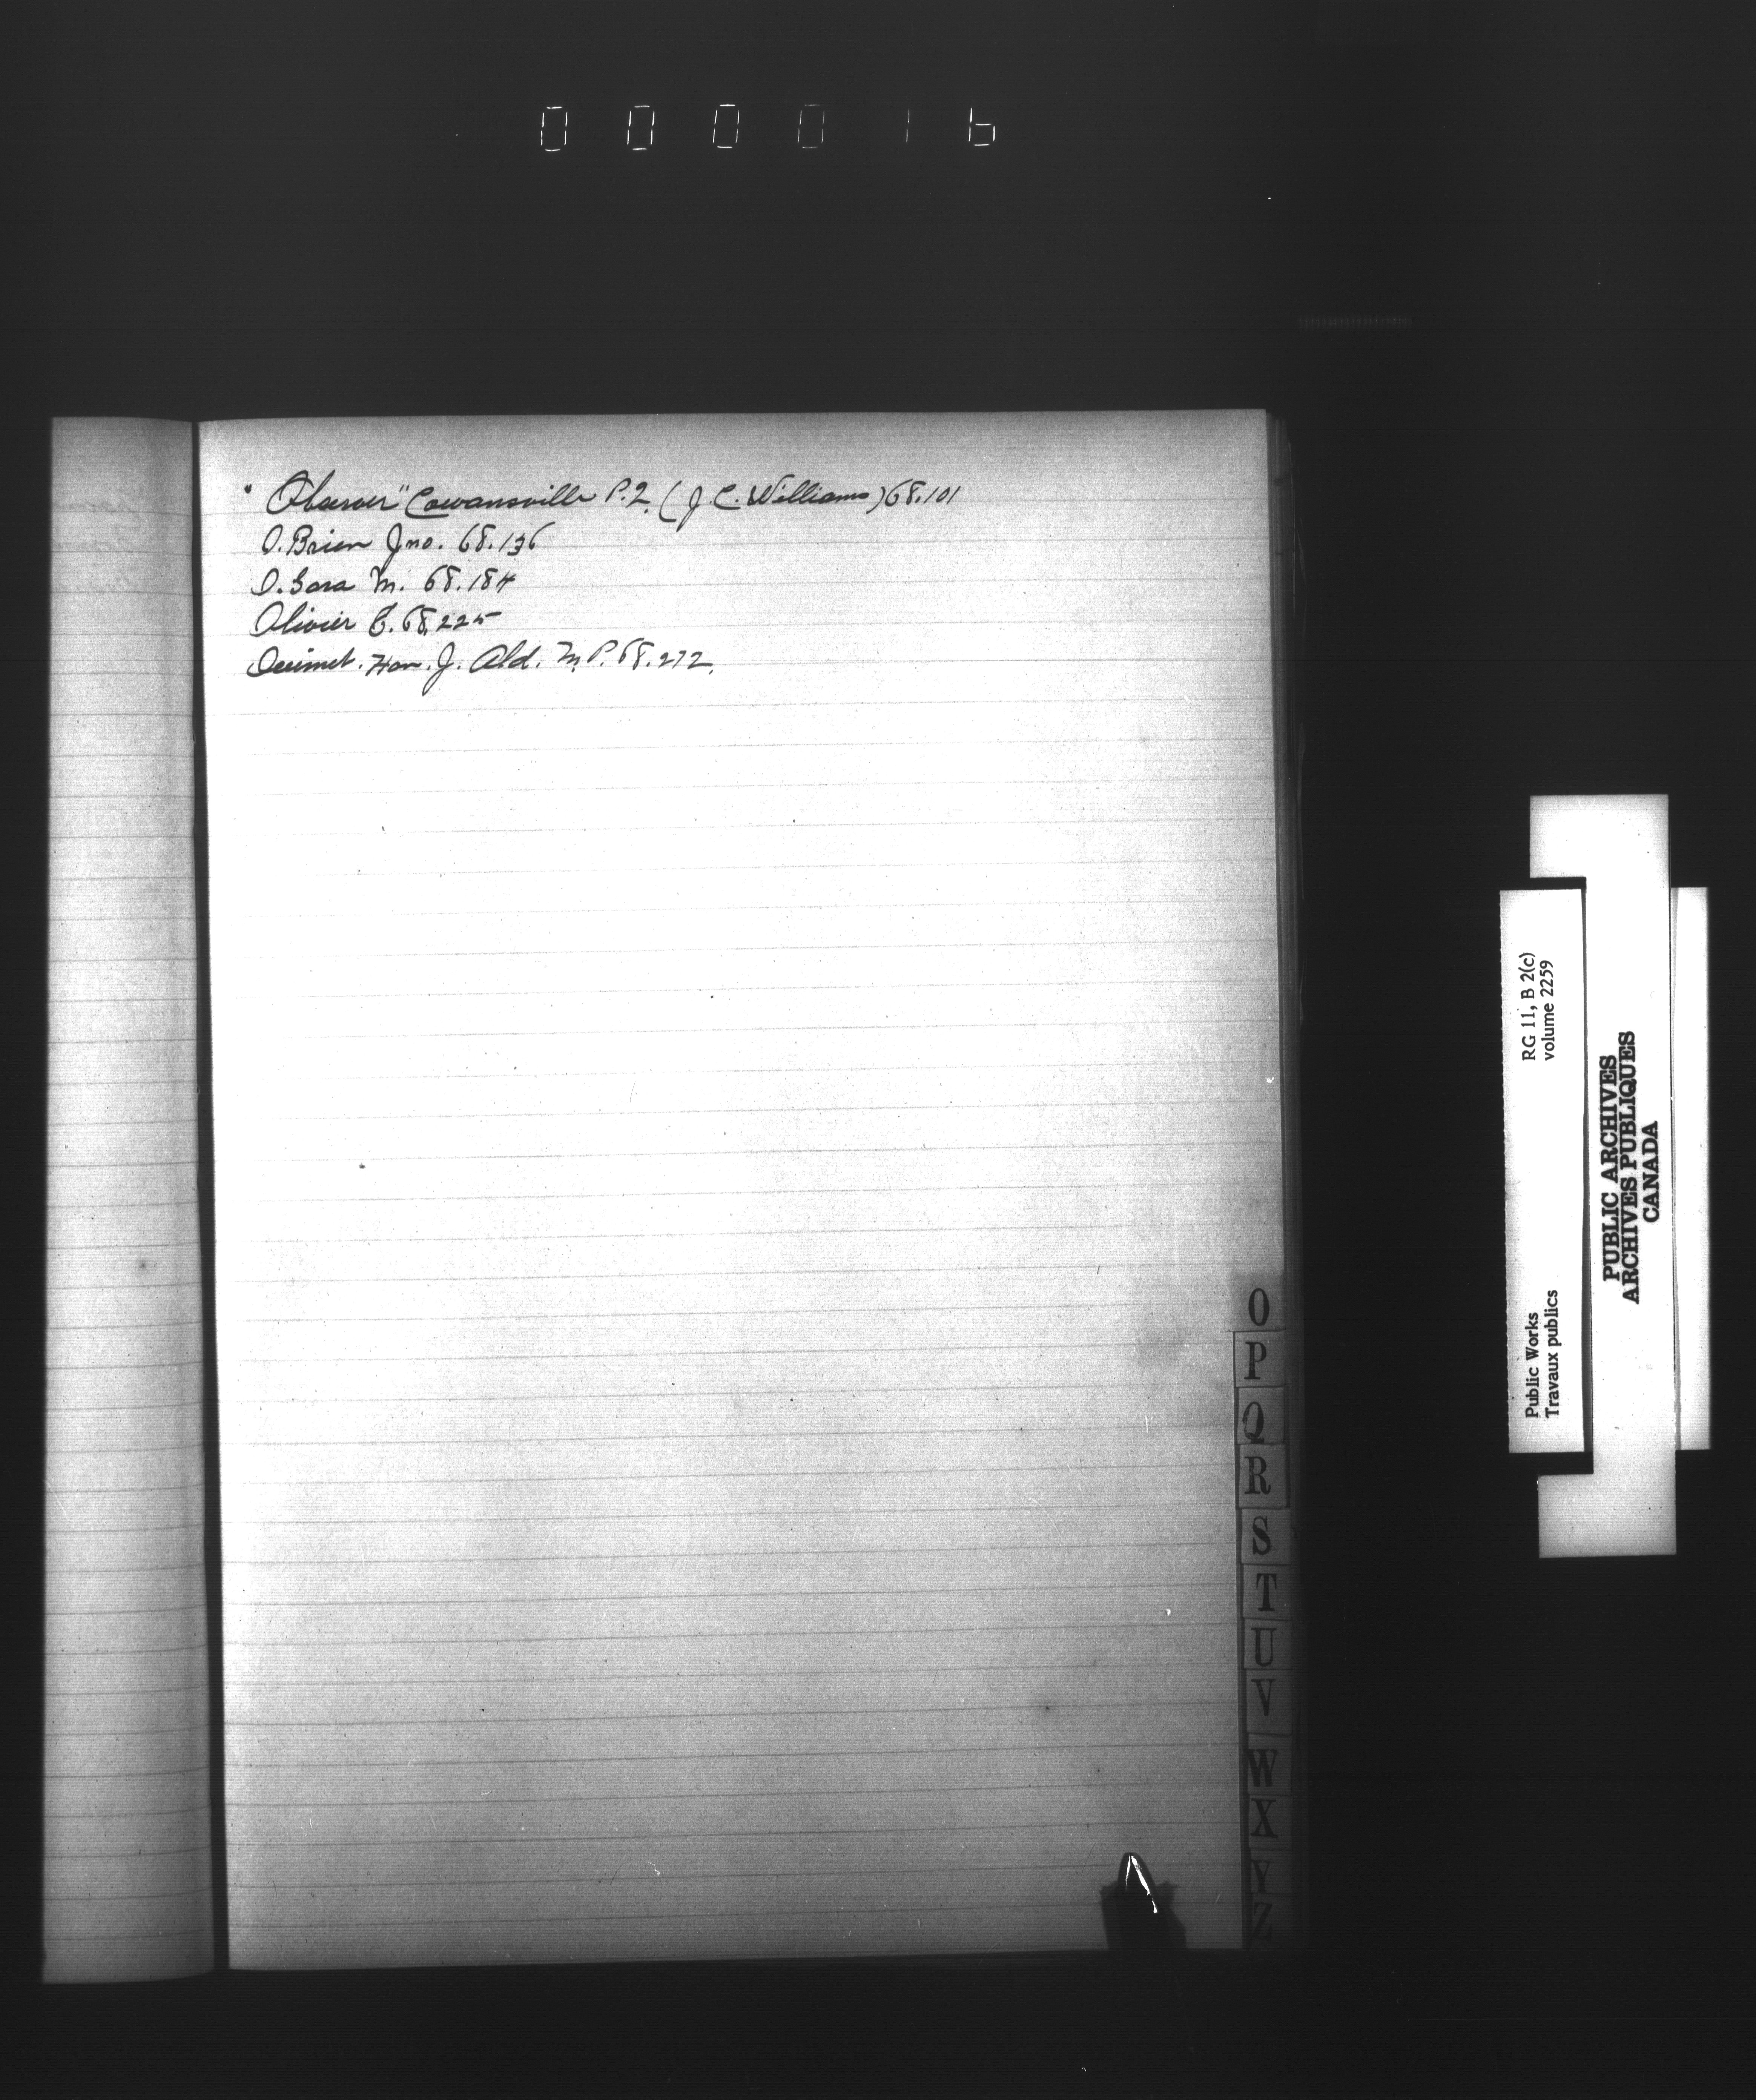 000016
"Observer" Cowansville P.Q. (J.C. Williams) 68.101
O.Brien Jno. 68.136
O.Gara M. 68.184
Olivier E. 68.225
Ouimet. Hon. J. Ald. M.P. 68.272.
O
P
Q
R
S
T
U
V
W
X
Y
Z
Public Works
Travaux publics
RG 11, B 2(c)
volume 2259
PUBLIC ARCHIVES
ARCHIVES PUBLIQUES
CANADA